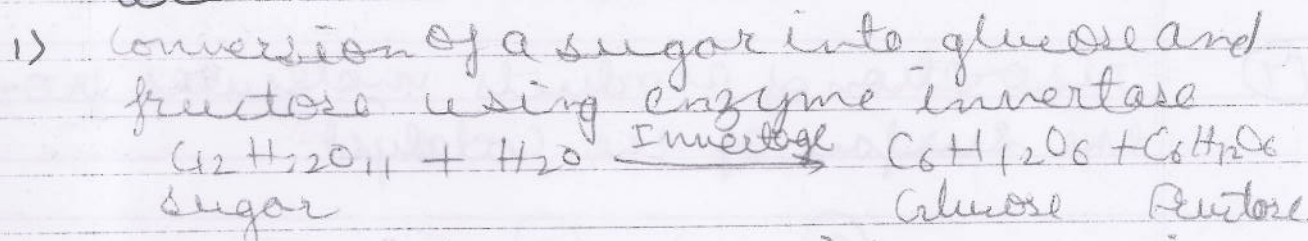 1) Conversion of a sugar into glucose and
fructose using enzyme invertase
C12H22O11 + H2O Invertage C6H12O6 + C6H12O6
Sugar Glucose Fructose